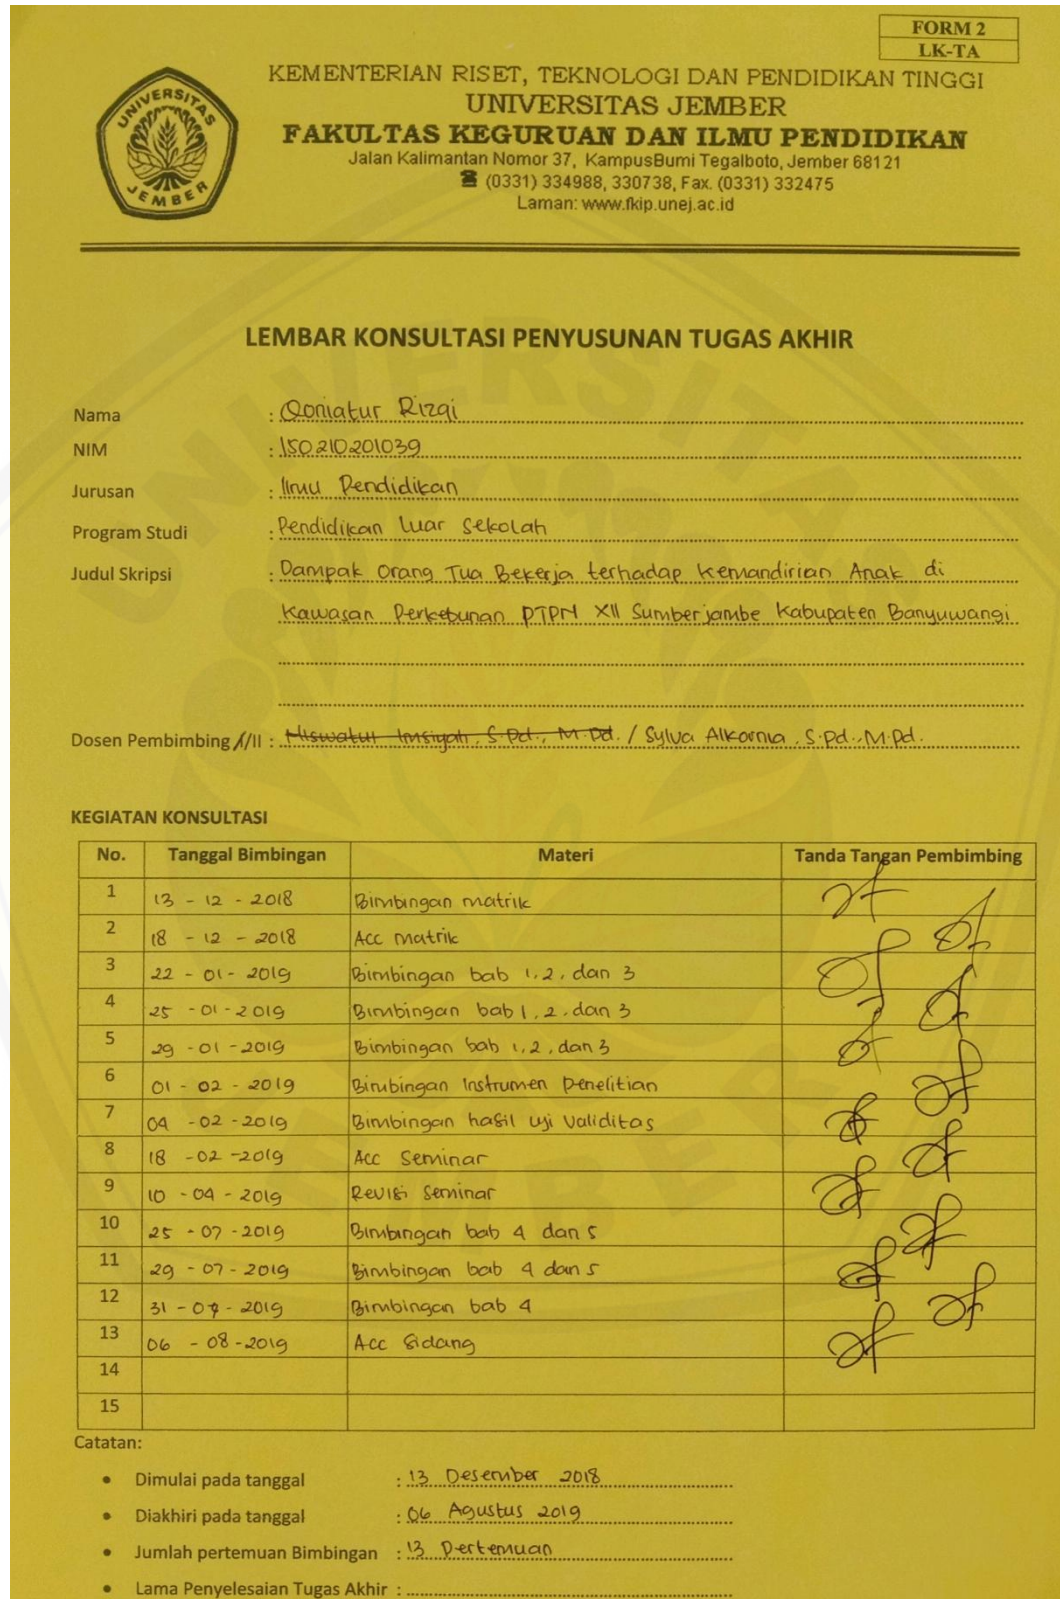 FORM 2
LK-TA
UNIVERSITAS
JEMBER
KEMENTERIAN RISET, TEKNOLOGI DAN PENDIDIKAN TINGGI
UNIVERSITAS JEMBER
FAKULTAS KEGURUAN DAN ILMU PENDIDIKAN
Jalan Kalimantan Nomor 37, KampusBumi Tegalboto, Jember 68121
☎ (0331) 334988, 330738, Fax. (0331) 332475
Laman: www.fkip.unej.ac.id
LEMBAR KONSULTASI PENYUSUNAN TUGAS AKHIR
Nama : Qoniatur Rizqi
NIM : 150210201039
Jurusan : Ilmu Pendidikan
Program Studi : Pendidikan Luar Sekolah
Judul Skripsi : Dampak Orang Tua Bekerja terhadap Kemandirian Anak di
Kawasan Perkebunan PTPN XII Sumberjambe Kabupaten Banyuwangi
Dosen Pembimbing I/II : Niswatul Imsiyah, S.Pd., M.Pd. / Sylva Alkornia, S.Pd., M.Pd.
KEGIATAN KONSULTASI
No. Tanggal Bimbingan Materi Tanda Tangan Pembimbing
1 13 - 12 - 2018 Bimbingan matrik
2 18 - 12 - 2018 Acc matrik
3 22 - 01 - 2019 Bimbingan bab 1, 2, dan 3
4 25 - 01 - 2019 Bimbingan bab 1, 2, dan 3
5 29 - 01 - 2019 Bimbingan bab 1, 2, dan 3
6 01 - 02 - 2019 Bimbingan Instrumen Penelitian
7 04 - 02 - 2019 Bimbingan hasil uji validitas
8 18 - 02 - 2019 Acc Seminar
9 10 - 04 - 2019 Revisi Seminar
10 25 - 07 - 2019 Bimbingan bab 4 dan 5
11 29 - 07 - 2019 Bimbingan bab 4 dan 5
12 31 - 07 - 2019 Bimbingan bab 4
13 06 - 08 - 2019 Acc Sidang
14
15
Catatan:
• Dimulai pada tanggal : 13 Desember 2018
• Diakhiri pada tanggal : 06 Agustus 2019
• Jumlah pertemuan Bimbingan : 13 Pertemuan
• Lama Penyelesaian Tugas Akhir :